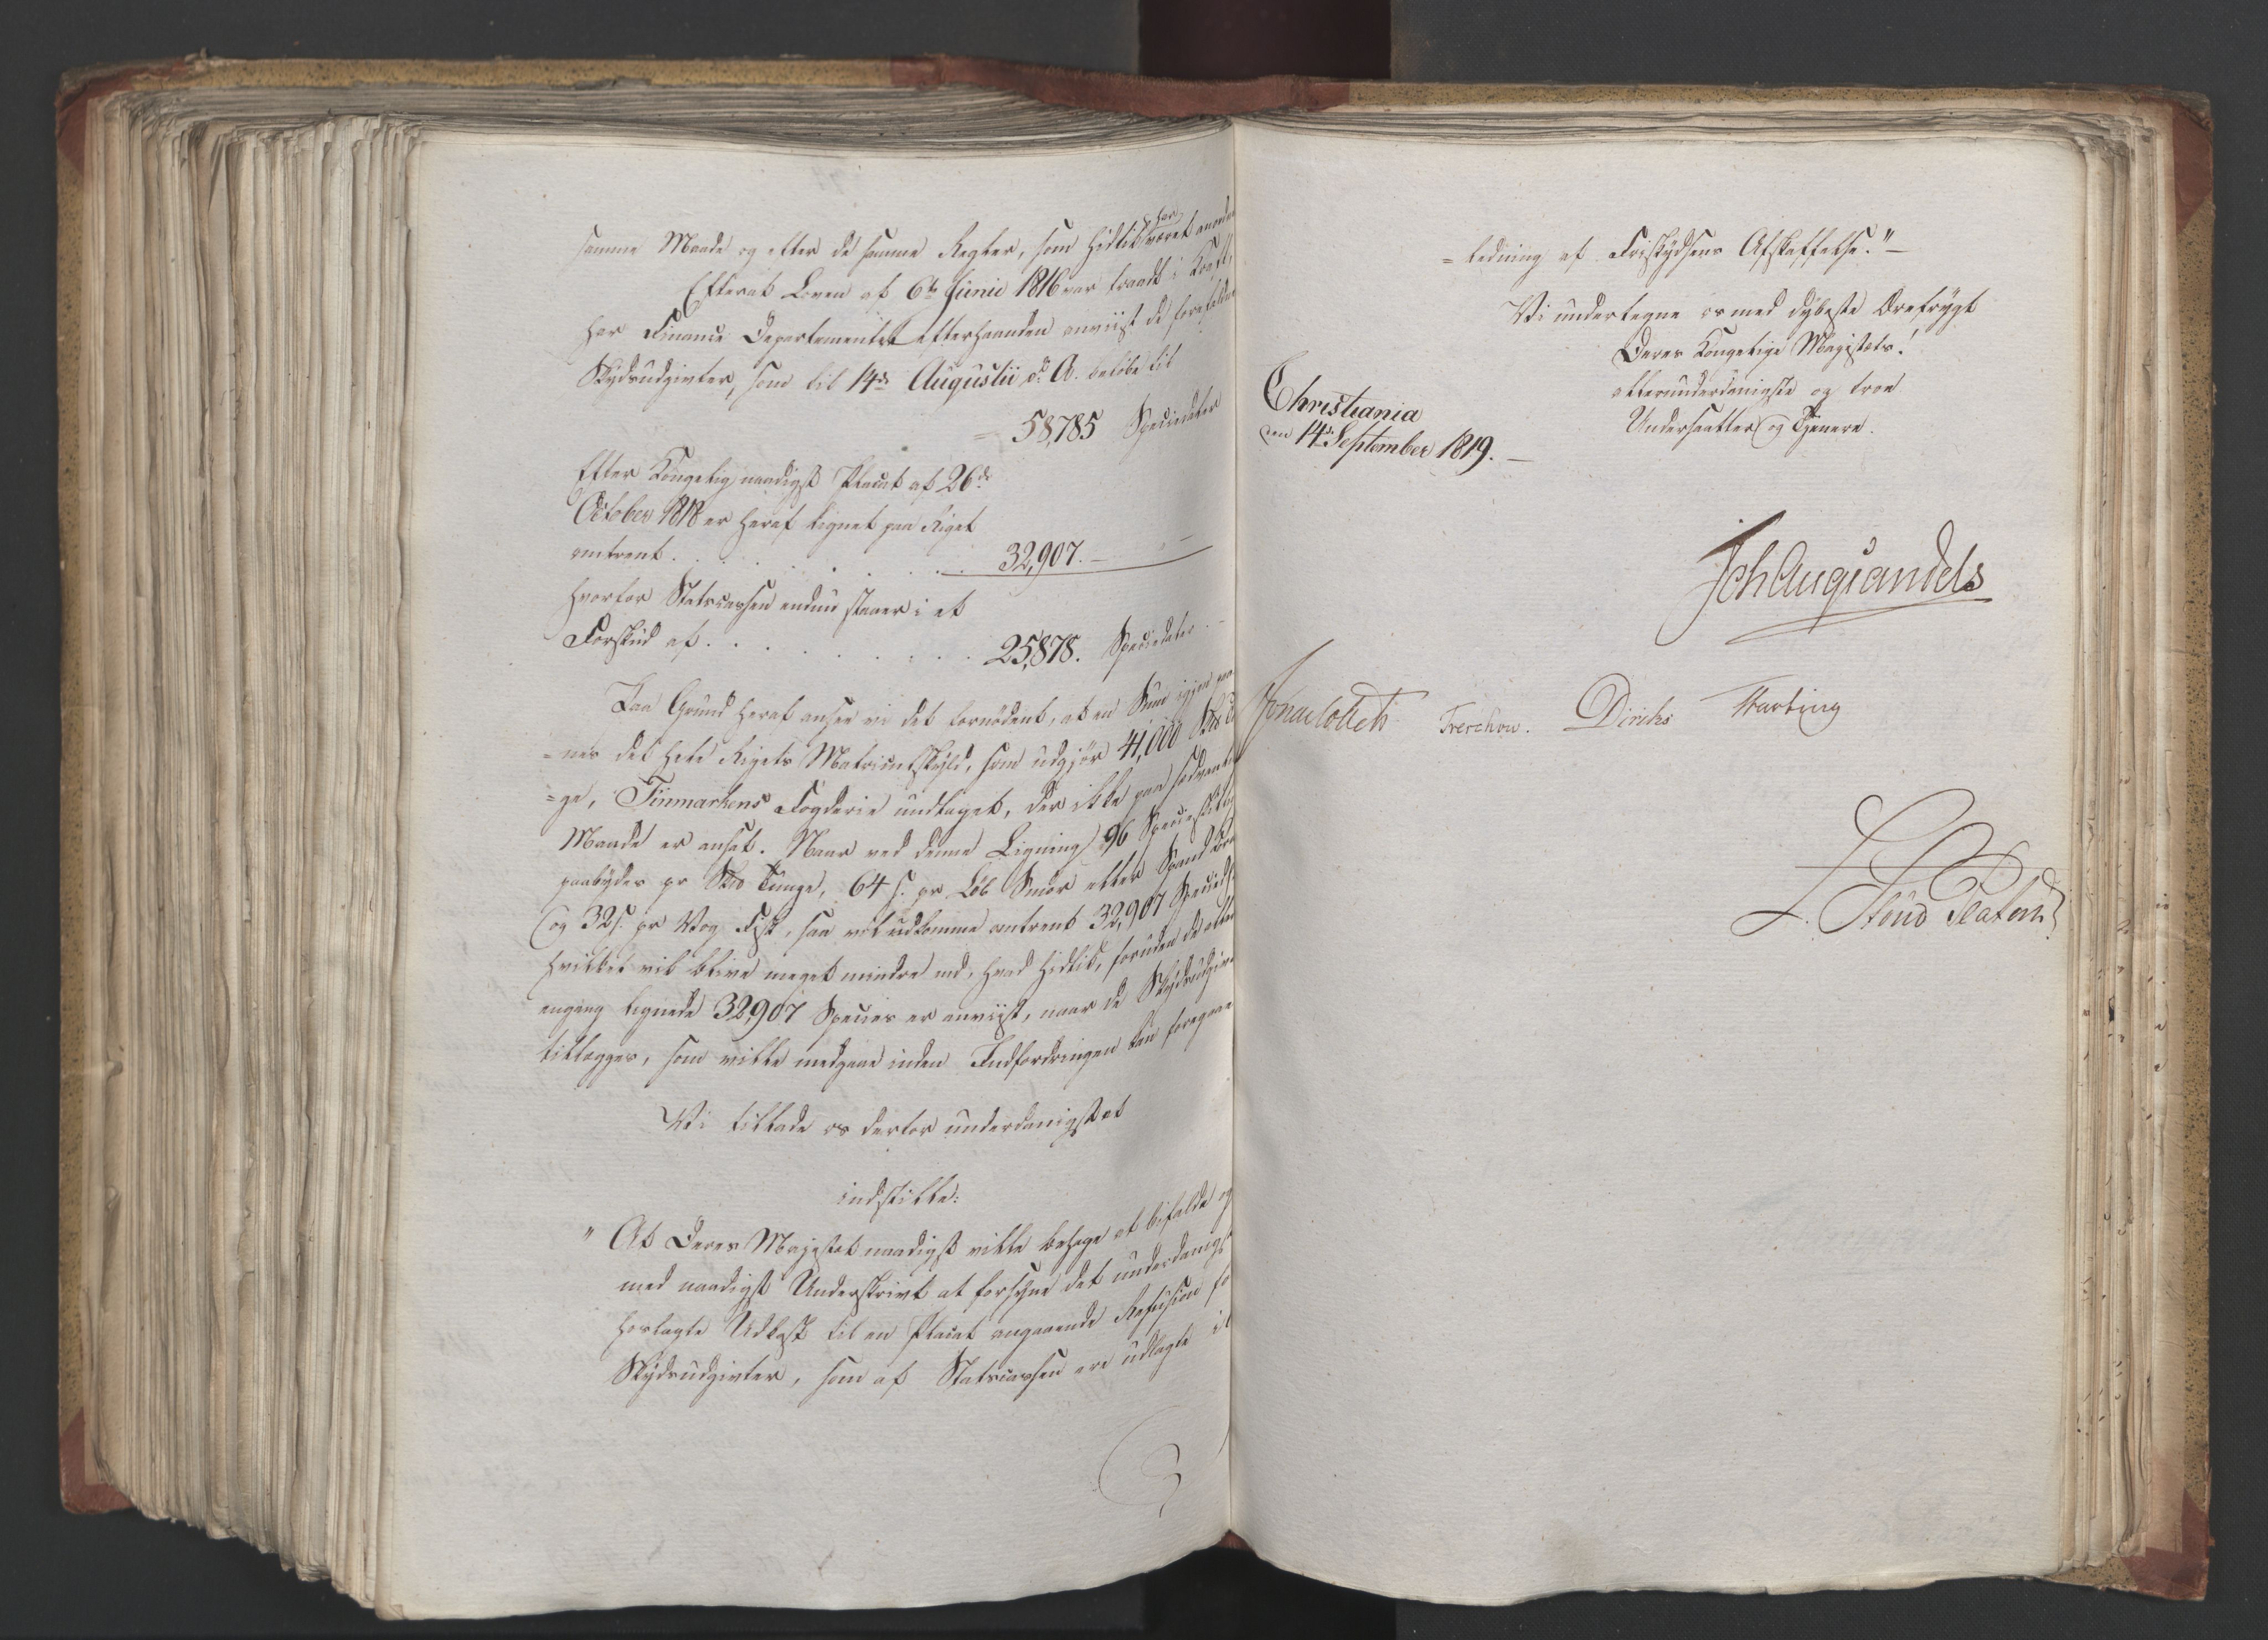 samme Maade og efter de samme Regler, som hidtil har været
Efterat Loven af 6te Junie 1816 var traadt i Kraft,
har Finance Departementet efterhaanden anviist de forefaldne
Skydsudgivter, som til 14de Augustii d: A. beløbe til
= 58,785 Speciedaler
Efter Kongelig naadigst Placat af 26de
October 1818 er heraf lignet paa Riget
omtrent . . . . . . . . 32,907. —
hvorfor Statscassen endnu staaer i et
Forskud af . . . . . . . . 25,878. Speciedaler. —
Paa Grund heraf ansee vi det fornødent, at en Sum igjen
=nes det hele Rigets Matriculskyld, som udgjør 41,000 Skd
=ge, Finmarkens Fogderie undtaget, der ikke paa sædvanlig
Maade er ansat. Naar ved denne Ligning 96 Specieskilling
paabydes pr Skd Tunge, 64 s. pr Løb Smør eller Spand
og 32 s. pr Vog Fisk, saa vil udkomme omtrent 32,907 Speciedlr
hvilket vil blive meget mindre end, hvad hidtil, foruden de allerede
engang lignede 32,907 Species er anviist, naar de Skydsudgivter
tillægges, som ville medgaae inden Indfordringen kan foregaae
Vi tillade os derfor underdanigst at
indstille:
" At Deres Majestæt naadigst ville behage at bifalde og
med naadigst Underskrivt at forsyne det underdanigst
forlagte Udkast til en Placat angaaende Refusion for
Skydsudgivter, som af Statscassen ere udlagte i
= ledning af Friskydsens Afskaffelse." —
Vi undertegne os med dybeste Ærefrygt
Deres Kongelige Majestæts!
allerunderdanigste og troe
Undersaatter og Tjenere.
Christiania
den 14de September 1819. —
Joh Aug Sandels
Jonas Collett Treschow. Diriks Motzfeldt
L. Stoud Platou